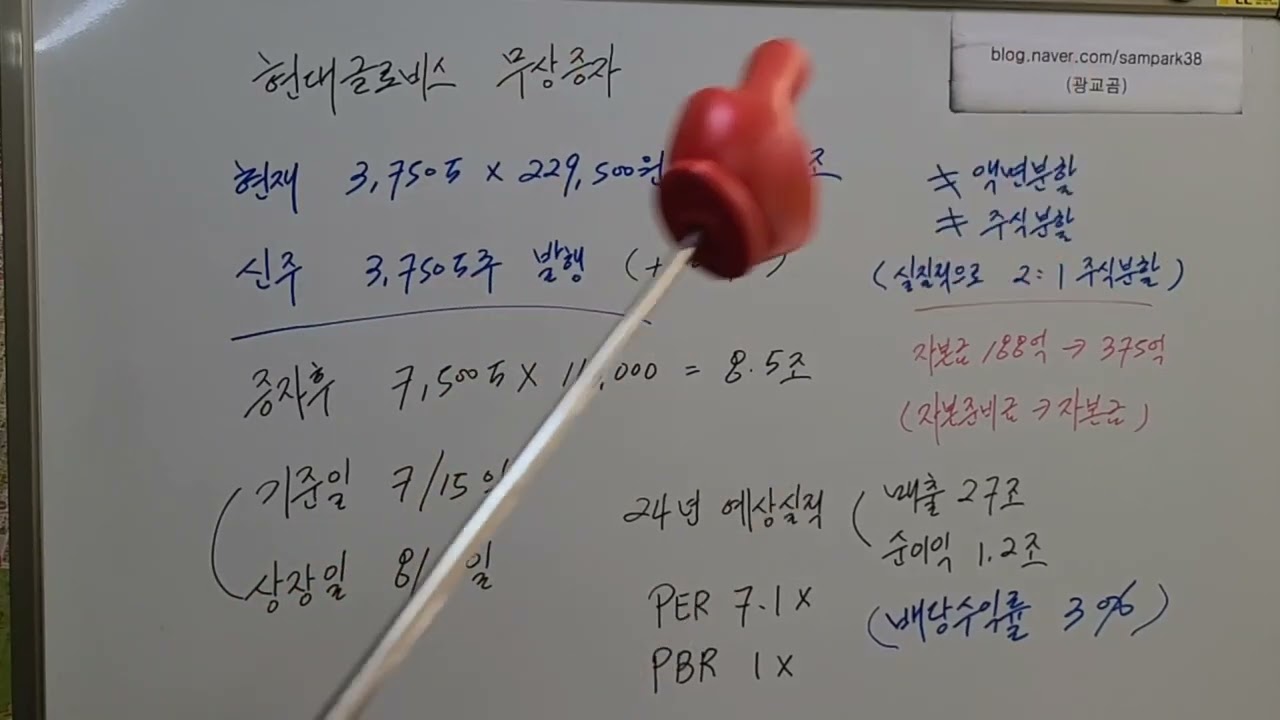 현대글로비스 무상증자
blog.naver.com/sampark38
(광교곰)
현재 3,750주 × 229,500원 조
신주 3,750주 발행 (+ )
증자후 7,500주 × ,000 = 8.5조
기준일 7/15일
상장일 8/ 일
≠ 액면분할
≠ 주식분할
(실질적으로 2:1 주식분할)
자본금 188억 → 375억
(자본준비금 → 자본금)
24년 예상실적
매출 27조
순이익 1.2조
PER 7.1 X
(배당수익률 3%)
PBR 1 X